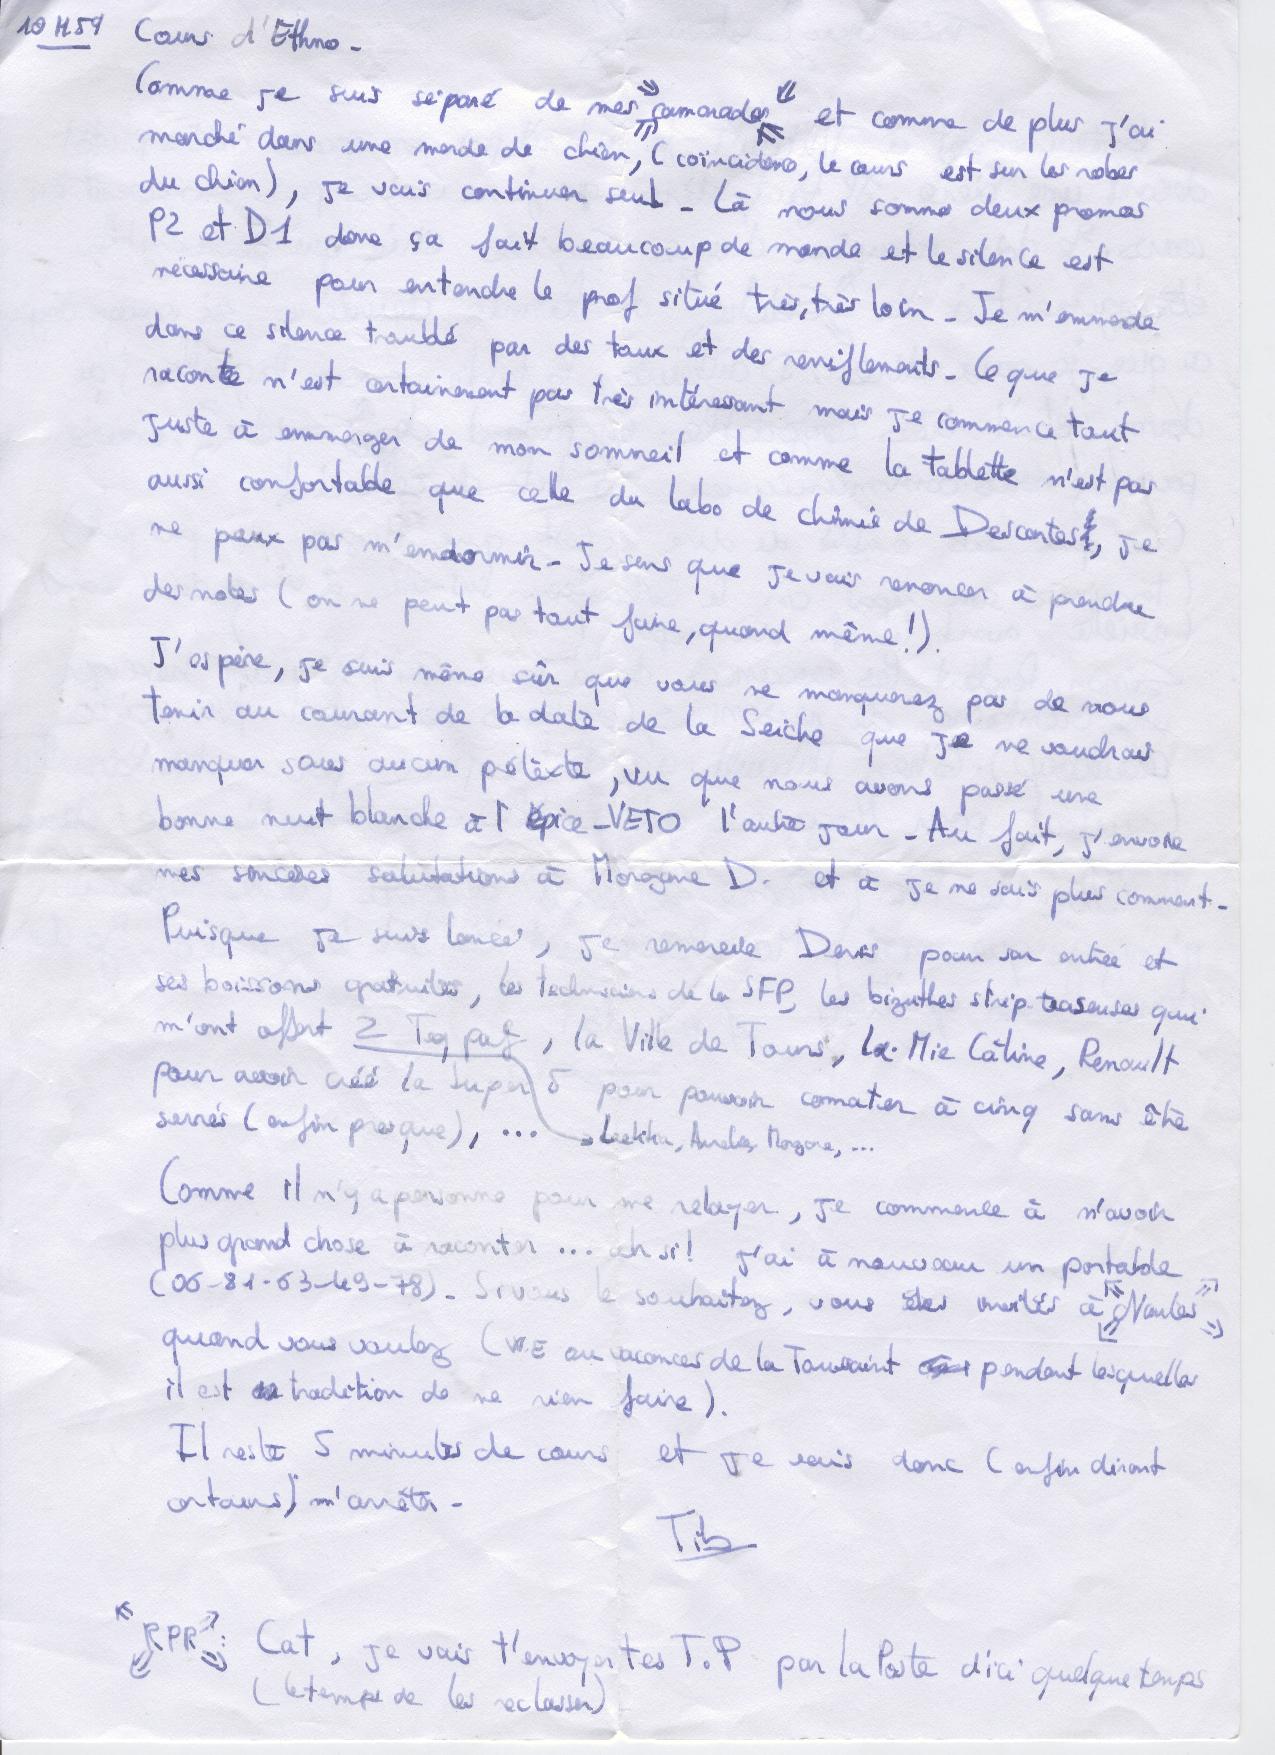 10H59 Cours d'Ethno -
Comme je suis séparé de mes camarades et comme de plus j'ai
marché dans une merde de chien, (coïncidence, le cours est sur les robes
du chien), je vais continuer seul - Là nous somme deux promos
P2 et D1 donc ça fait beaucoup de monde et le silence est
nécessaire pour entendre le prof situé très, très loin - Je m'emmerde
dans ce silence troublé par des toux et des reniflements - Ce que je
raconte n'est certainement pas très intéressant mais je commence tout
juste à emmerger de mon sommeil et comme la tablette n'est pas
aussi confortable que celle du labo de chimie de Descartes, je
ne peux pas m'endormir - Je sens que je vais renoncer à prendre
des notes (on ne peut pas tout faire, quand même!).
J'espère, je suis même sûr que vous ne manquerez pas de nous
tenir au courant de la date de la Seiche que je ne voudrais
manquer sous aucun prétexte, vu que nous avons passé une
bonne nuit blanche à l'épice-VETO l'autre jour - Au fait, j'envoie
mes sincères salutations à Morgane D. et à je ne sais plus comment -
Puisque je suis lancé, je remercie Denis pour son entrée et
ses boissons gratuites, les techniciens de la SFP, les bizuthes strip teaseuses qui
m'ont offert 2 Teq paf, la Ville de Tours, la Mie Câline, Renault
pour avoir créé la Super 5 pour pouvoir comater à cinq sans être
serrés (enfin presque), ... Laetitia, Aurélie, Morgane, ...
Comme il n'y a personne pour me relayer, je commence à n'avoir
plus grand chose à raconter ... ah si! j'ai à nouveau un portable
(06-81-63-49-78) - Si vous le souhaitez, vous êtes invités à Nantes
quand vous voulez (WE ou vacances de la Toussaint pendant lesquelles
il est tradition de ne rien faire).
Il reste 5 minutes de cours et je vais donc (enfin diront
certains) m'arrêter -
Tib
RPR : Cat, je vais t'envoyer tes T.P par la Poste d'ici quelque temps
(le temps de les reclasser)